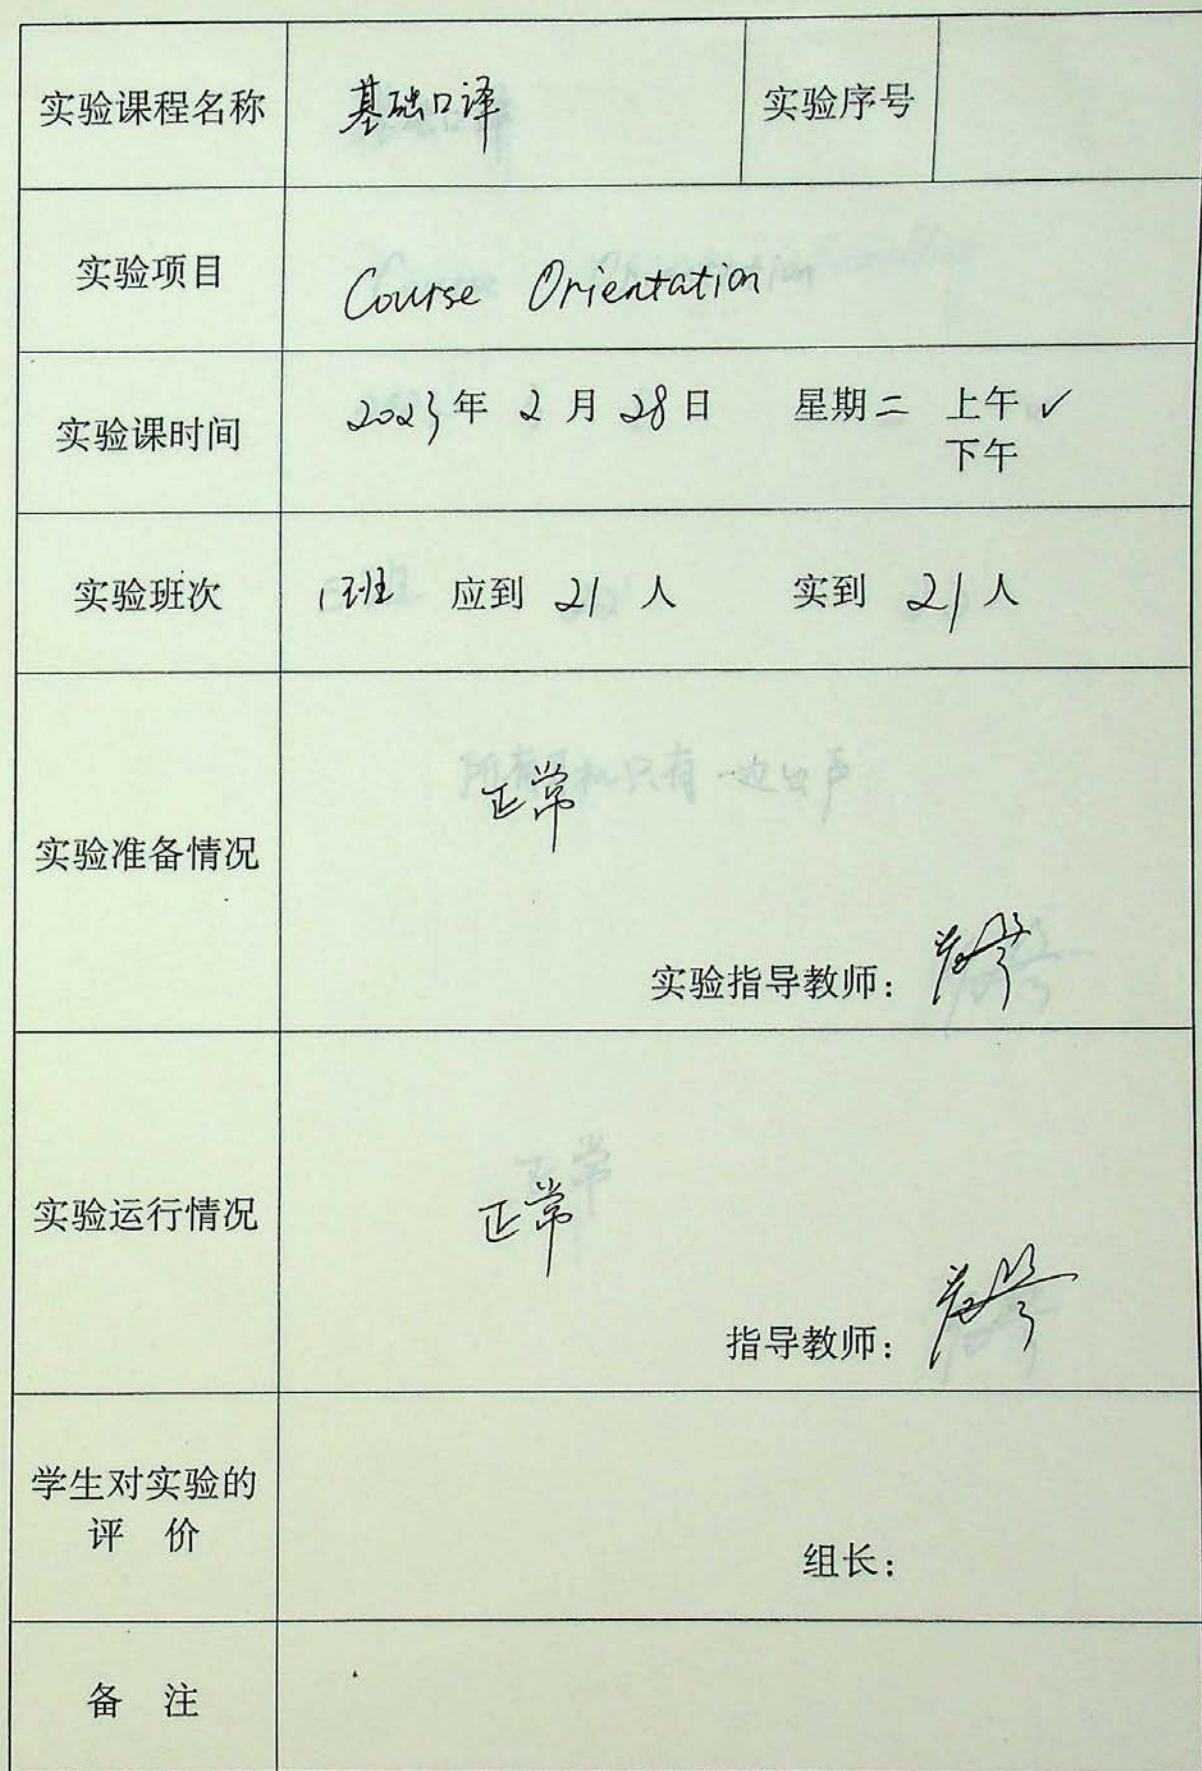 实验课程名称 基础口译 实验序号
实验项目 Course Orientation
实验课时间 2023年 2 月 28 日 星期二 上午 ✓
下午
实验班次 1班 应到 21 人 实到 21 人
所有耳机只有一边出声
正常
实验准备情况
实验指导教师：
正常
实验运行情况
指导教师：
学生对实验的
评 价
组长：
备 注